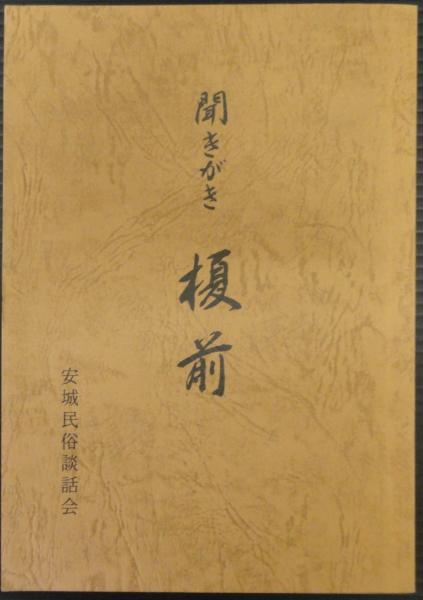 聞きがき
榎前
安城民俗談話会